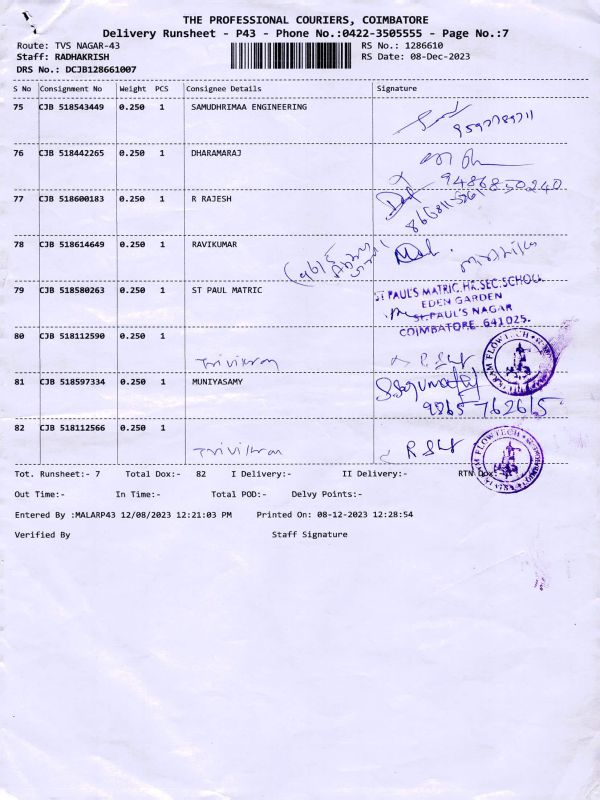 THE PROFESSIONAL COURIERS, COIMBATORE
Delivery Runsheet - P43 - Phone No.:0422-3505555 - Page No.:7
Route: TVS NAGAR-43 RS No.: 1286610
Staff: RADHAKRISH RS Date: 08-Dec-2023
DRS No.: DCJB128661007
S No Consignment No Weight PCS Consignee Details Signature
75 CJB 518543449 0.250 1 SAMUDHRIMAA ENGINEERING
76 CJB 518442265 0.250 1 DHARAMARAJ
9486850240
77 CJB 518600183 0.250 1 R RAJESH
78 CJB 518614649 0.250 1 RAVIKUMAR
79 CJB 518580263 0.250 1 ST PAUL MATRIC
ST PAUL'S MATRIC.HR.SEC.SCHOOL
EDEN GARDEN
ST.PAUL'S NAGAR
COIMBATORE 641025.
80 CJB 518112590 0.250 1
81 CJB 518597334 0.250 1 MUNIYASAMY
9865 762615
82 CJB 518112566 0.250 1
Tot. Runsheet:- 7 Total Dox:- 82 I Delivery:- II Delivery:- RTN Dox:-
Out Time:- In Time:- Total POD:- Delvy Points:-
Entered By :MALARP43 12/08/2023 12:21:03 PM Printed On: 08-12-2023 12:28:54
Verified By Staff Signature